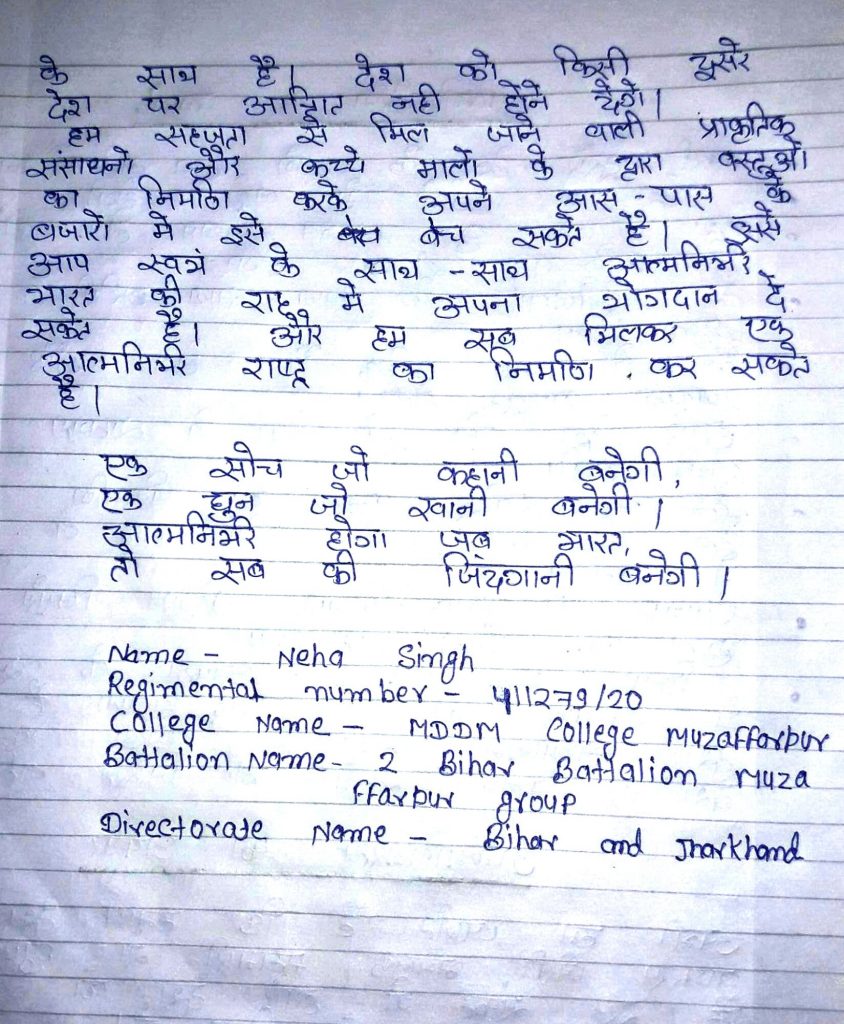 के साथ है। देश को किसी दूसरे
देश पर आश्रित नही होने देंगे।
हम सहजता से मिल जाने वाली प्राकृतिक
संसाधनों और कच्चे मालों के द्वारा वस्तुओं
का निर्माण करके अपने आस-पास के
बजारों में इसे बेच सकते है। इससे
आप स्वयं के साथ-साथ आत्मनिर्भर
भारत की राह में अपना योगदान दे
सकते है। और हम सब मिलकर एक
आत्मनिर्भर राष्ट्र का निर्माण कर सकते
है।
एक सोच जो कहानी बनेगी,
एक धुन जो रवानी बनेगी।
आत्मनिर्भर होगा जब भारत,
तो सब की जिंदगानी बनेगी।
Name - Neha Singh
Regimental number - 411279/20
College Name - MDDM College Muzaffarpur
Battalion Name - 2 Bihar Battalion Muza
ffarpur group
Directorate Name - Bihar and Jharkhand